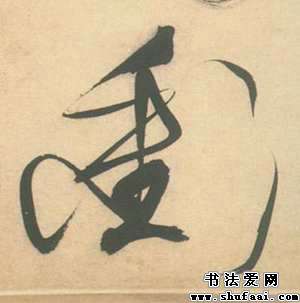 衝
书法爱网
www.shufaai.com